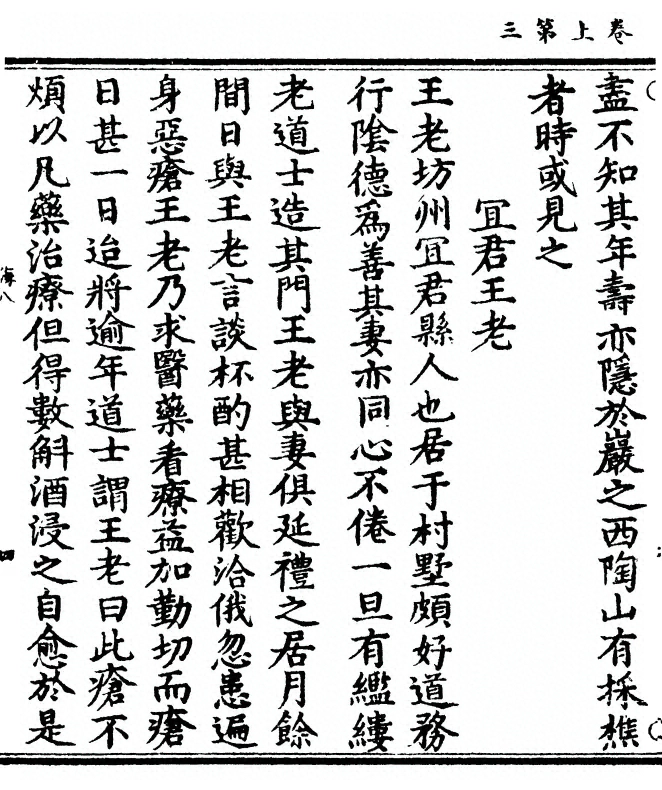 卷上第三
盡不知其年壽亦隱於巖之西陶山有採樵
者時或見之
冝君王老
王老坊州冝君縣人也居于村墅頗好道務
行陰德爲善其妻亦同心不倦一旦有繿縷
老道士造其門王老與妻俱延禮之居月餘
間日與王老言談杯酌甚相歡洽俄忽患遍
身惡瘡王老乃求醫藥看療益加勤切而瘡
日甚一日迨將逾年道士謂王老曰此瘡不
煩以凡藥治療但得數斛酒浸之自愈於是
海八
四